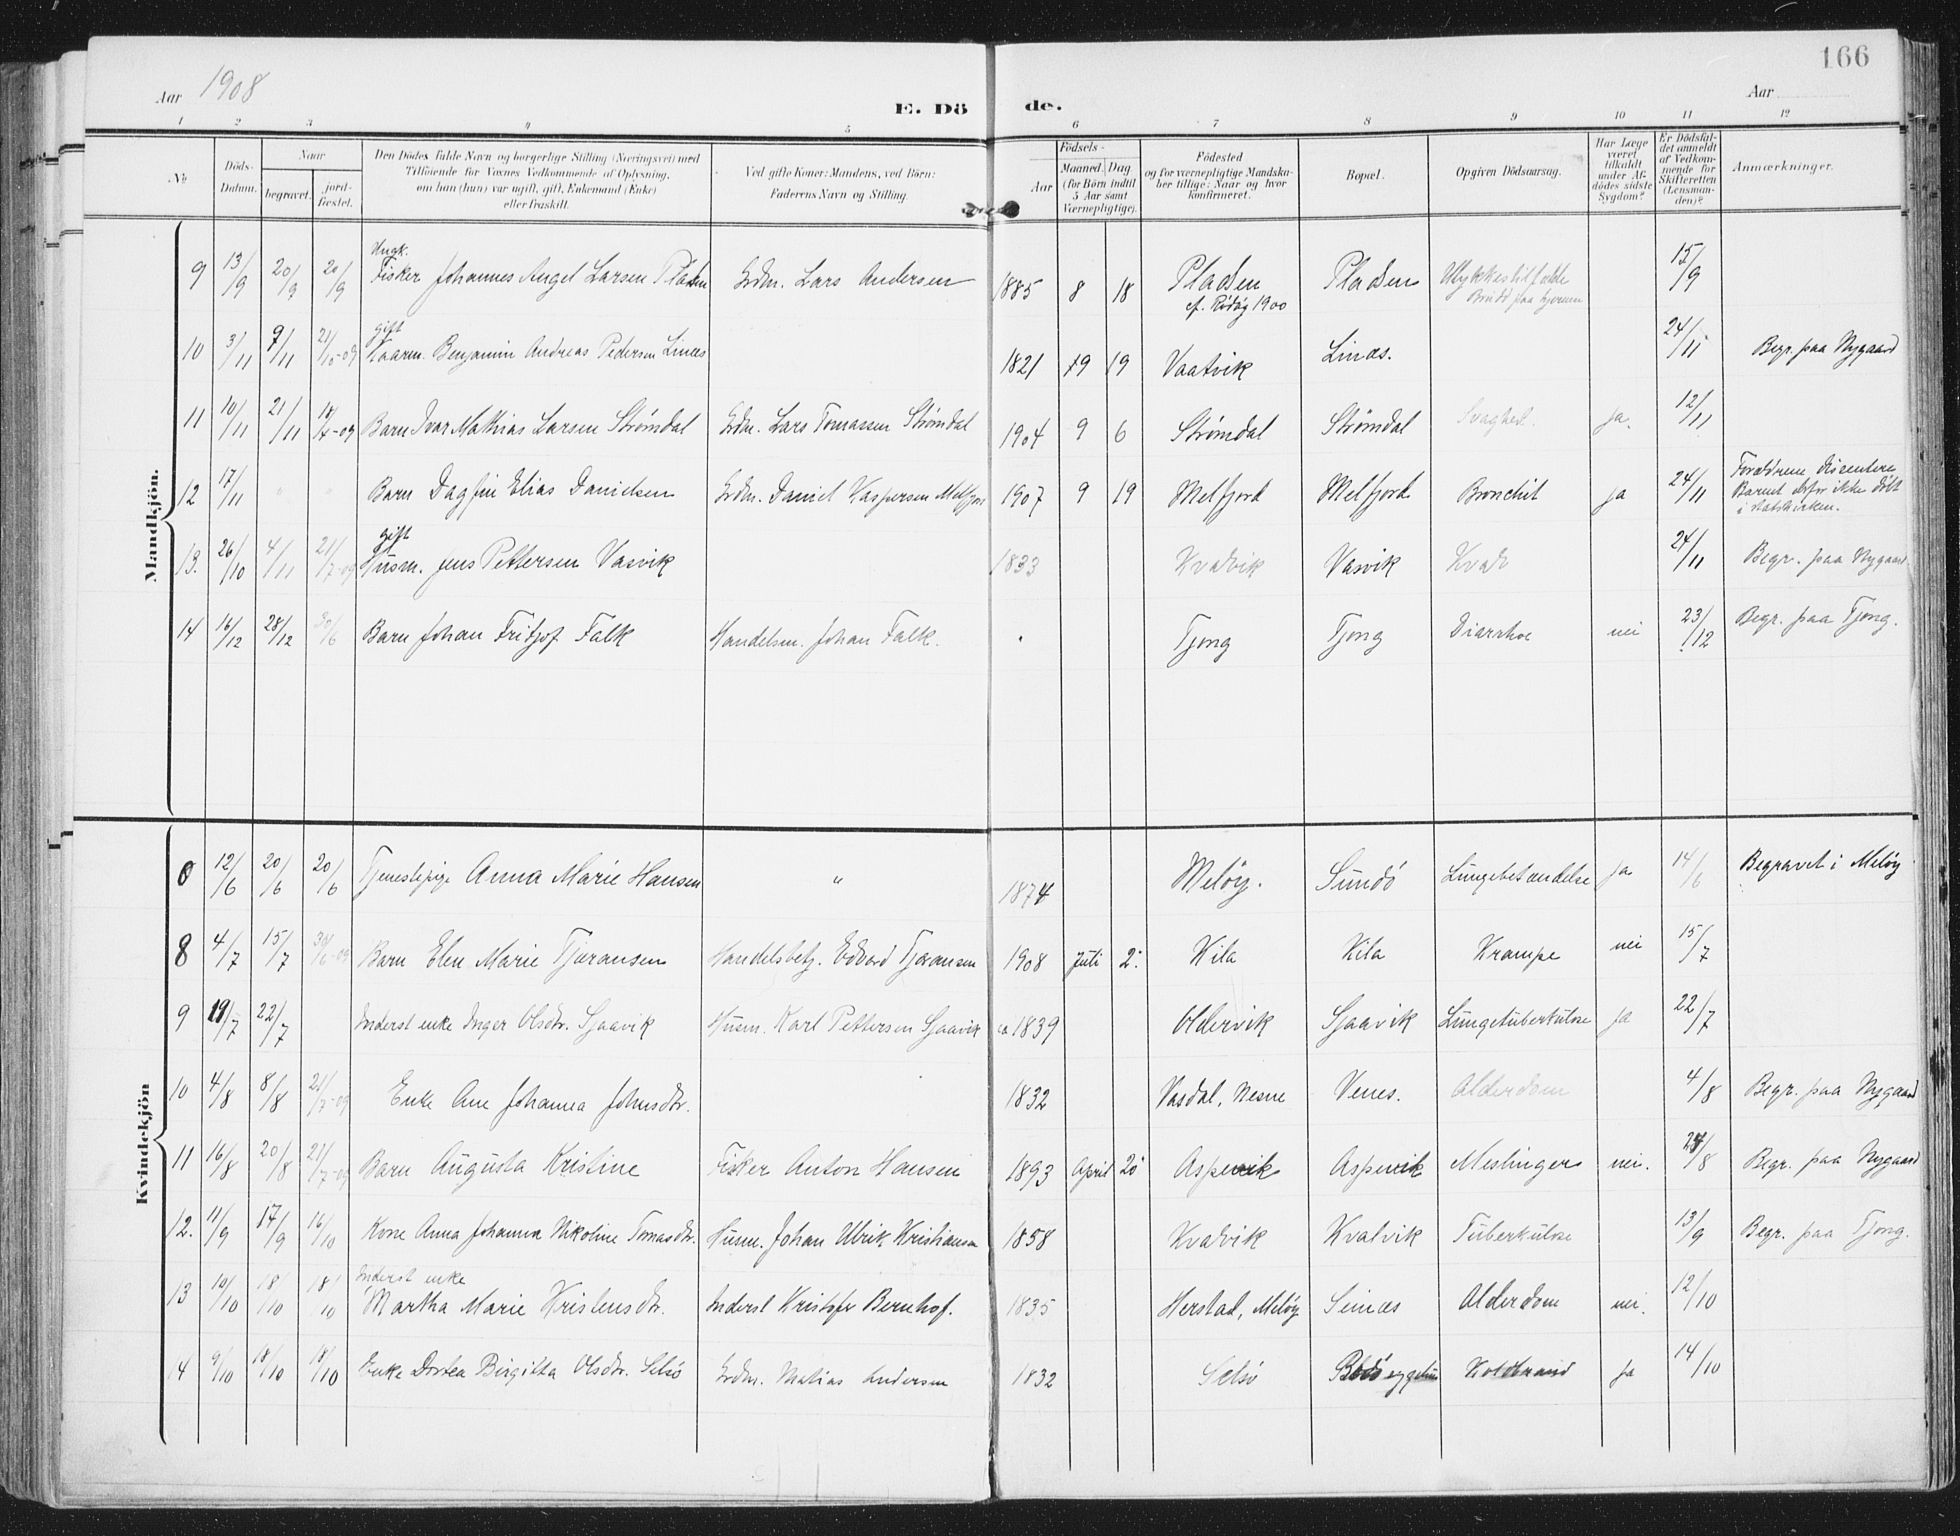 166
Aar 1908
E. Dö de.
Aar
1 2 3 4 5 6 7 8 9 10 11 12
No
Döds-Datum.
Naar
begravet.
jord-fæstet.
Den Dödes fulde Navn og borgerlige Stilling (Næringsvei) med
Tilföiende for Voxnes Vedkommende af Oplysning,
om han (hun) var ugift, gift, Enkemand (Enke)
eller fraskilt.
Ved gifte Koner: Mandens, ved Börn:
Faderens Navn og Stilling.
Födsels-
Aar
Maaned. Dag.
(for Börn indtil
5 Aar samt
Værnepligtige).
Födested
og for værnepligtige Mandska-
ber tillige: Naar og hvor
konfirmeret.
Bopæl.
Opgiven Dödsaarsag.
Har Læge
været
tilkaldt
under Af-
dödes sidste
Sygdom?
Er Dödsfal-
det anmeldt
af Vedkom-
mende for
Skifteretten
(Lensman-
den)?
Anmærkninger.
Mandkjön.
9 13/9 20/9 20/9 Ungk. Fisker Johannes Angel Larsen Gdm. Lars Andersen 1885 8 18 cf. Rödöy 1900 15/9
10 3/11 9/11 gift Kaarm. Benjamin Andreas Pedersen Linæs 1821 19 Vaatvik Linæs. 24/11 Begr. paa Nygaard
11 10/11 21/11 Barn Ivar Mathias Larsen Strømdal Grdm. Lars Tomassen Strømdal 1904 9 6 Strømdal Strømdal Svaghed. ja. 12/11
12 17/11 " " Barn Dagfin Elias Danielsen Grdm. Daniel Kaspersen Melfjord 1907 9 19 Melfjord Melfjord Bronchit ja 24/11 Forældrene dissentere Barnet derfor ikke döbt i statskirken.
13. 26/10 4/11 21/7-09 gift Husm. Jens Pettersen Vasvik 1833 Kvalvik Vasvik 24/11 Begr. paa Nygaard
14 16/12 28/12 Barn Johan Fritjof Falk Handelsm. Johan Falk. Tjong Tjong Diarrhoe nei 23/12 Begr. paa Tjong.
Kvindekjön
12/6 20/6 20/6 Tjenestepige Anna Marie Hansen " 1874 Melöy. Sundö Lungebetændelse ja 14/6 Begravet i Melöy
8 4/7 15/7 Barn Elen Marie Tjæransen Handelsbetj. Edvard Tjæransen 1908 Juli 2. Kila Kila Krampe nei 15/7
9 19/7 22/7 Inderst enke Inger Olsdtr. Sjaavik Husm. Karl Pettersen Sjaavik ca 1839 Oldervik Sjaavik Lungetuberkulose ja 22/7
10 4/8 8/8 21/7-09 Enke Ane Johanna Johnsdtr. 1832 Vasdal, Nesne Venes. Alderdom 4/8 Begr. paa Nygaard
11 16/8 20/8 21/7-09 Barn Augusta Kristine Fisker Anton Hansen 1893 April 20 Aspevik Aspevik Meslinger nei. 24/8 Begr. paa Nygaard
12. 11/9 17/9 16/10 Kone Anna Johanna Nikoline Tomasdtr. Husm. Johan Ulrik Kristiansen 1858 Kvalvik Kvalvik Tuberkulose 13/9 Begr. paa Tjong.
13 10/10 18/10 18/10 Inderst enke Martha Marie Kristensdtr. Inderst Kristofer Bernhof. 1835 Herstad, Melöy Seinæs Alderdom nei. 12/10
14 9/10 18/10 18/10 Enke Dortea Birgitta Olsdtr. Selsö Grdm. Matias Andersen 1832 Selsö Bodö sygehus Koldbrand ja 14/10